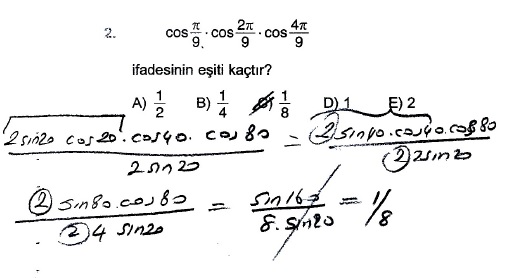 2. cos π/9 · cos 2π/9 · cos 4π/9
ifadesinin eşiti kaçtır?
A) 1/2 B) 1/4 C) 1/8 D) 1 E) 2
(2 sin20 cos20 . cos40 . cos80) / (2 sin20) = (2 sin40 . cos40 . cos80) / (2 2 sin20)
(2 sin80 . cos80) / (2 4 sin20) = sin160 / (8 . sin20) = 1/8